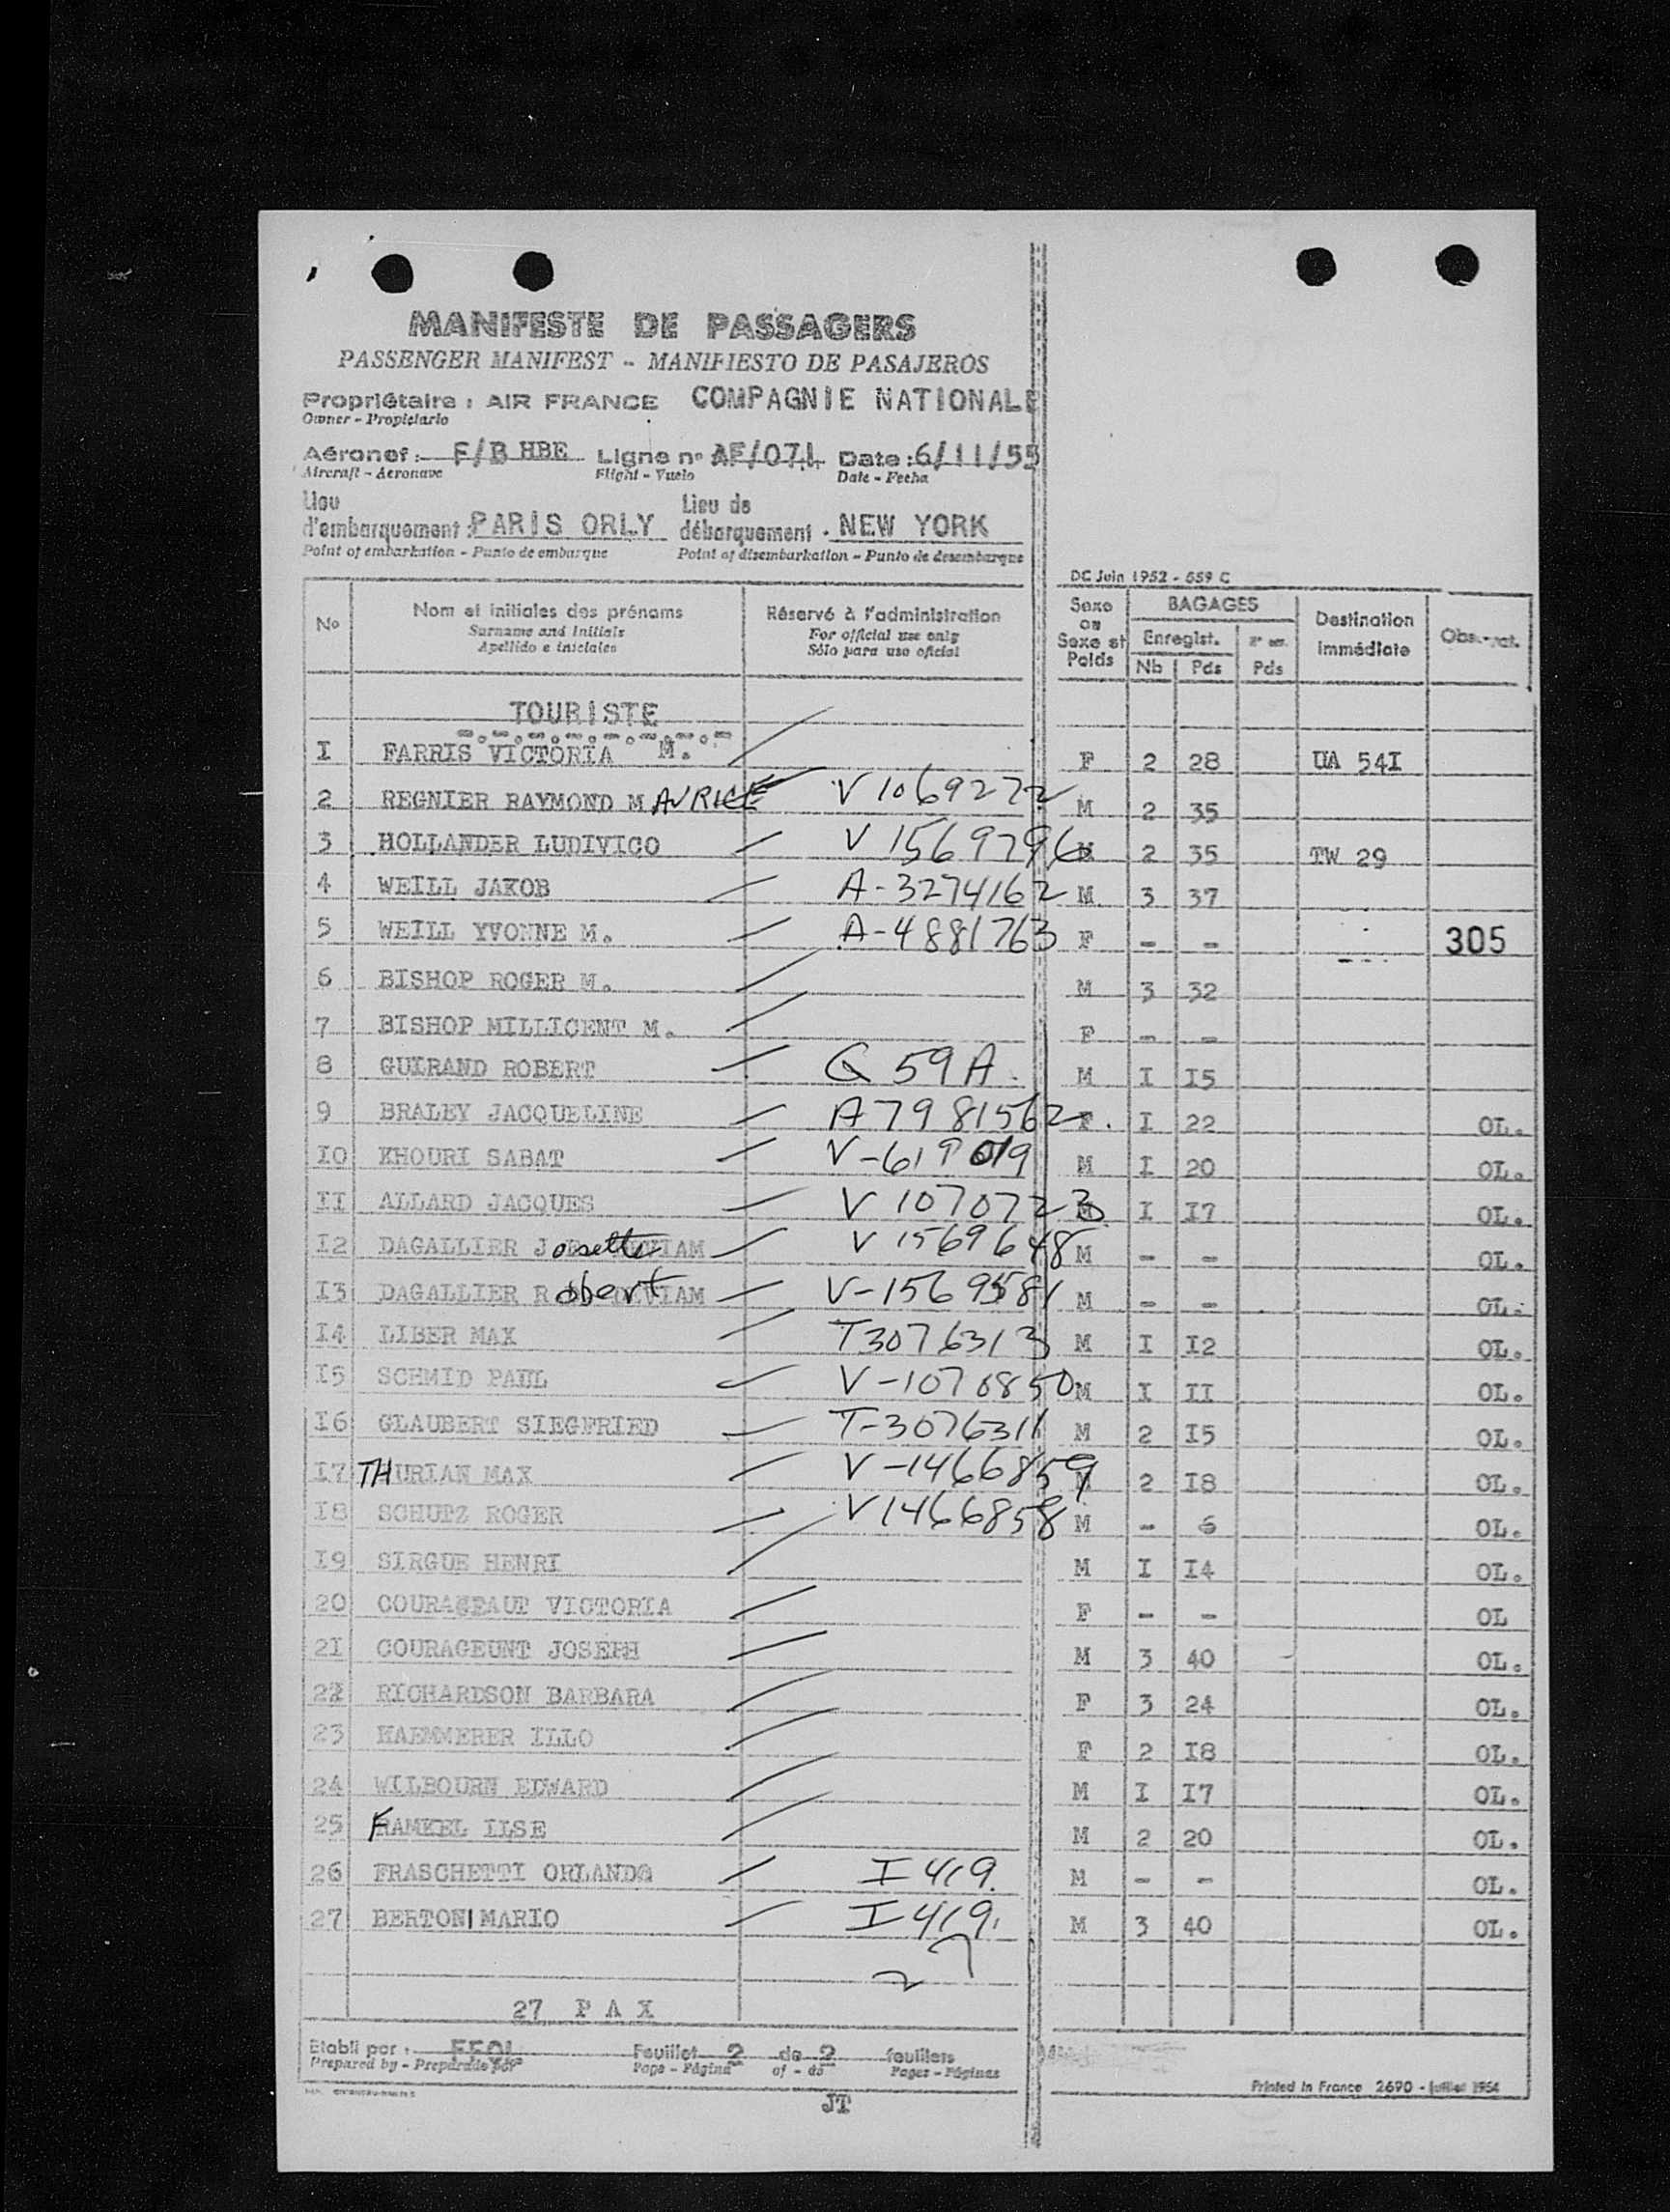 MANIFESTE DE PASSAGERS
PASSENGER MANIFEST - MANIFIESTO DE PASAJEROS
Propriétaire : AIR FRANCE COMPAGNIE NATIONALE
Owner - Propietario
Aéronef : F/B HBE Ligne n° AF/071 Date : 6/11/55
Aircraft - Aeronave Flight - Vuelo Date - Fecha
Lieu d'embarquement : PARIS ORLY Lieu de débarquement : NEW YORK
Point of embarkation - Punto de embarque Point of disembarkation - Punto de desembarque
DC Juin 1952 - 559 C
No Nom et initiales des prénoms Réservé à l'administration Sexe ou Sexe et Poids BAGAGES Destination immédiate
Surname and Initials For official use only Enregist.
Apellido e iniciales Sólo para uso oficial Nb Pds Pds
TOURISTE
I FARRIS VICTORIA M. F 2 28 UA 54I
2 REGNIER RAYMOND MAURICE V 1069272 M 2 35
3 HOLLANDER LUDIVICO V 1569796 M 2 35 TW 29
4 WEILL JAKOB A-3274162 M 3 37
5 WEILL YVONNE M. A-4881763 F - - 305
6 BISHOP ROGER M. M 3 32
7 BISHOP MILLICENT M. F - -
8 GUIRAND ROBERT G 59A. M I I5
9 BRALEY JACQUELINE A7981562 F I 22 OL.
I0 KHOURI SABAT V-619019 M I 20 OL.
II ALLARD JACQUES V 1070723 M I I7 OL.
I2 DAGALLIER Josette V 1569648 M - - OL.
I3 DAGALLIER Robert V-1569581 M - - OL.
I4 LIBER MAX T3076313 M I I2 OL.
I5 SCHMID PAUL V-1070850 M I II OL.
I6 GLAUBERT SIEGFRIED T-3076311 M 2 I5 OL.
I7 THURIAN MAX V-1466859 M 2 I8 OL.
I8 SCHUTZ ROGER V1466858 M - 6 OL.
I9 SIRGUE HENRI M I I4 OL.
20 COURAGEAUT VICTORIA F - - OL
2I COURAGEUNT JOSEPH M 3 40 OL.
22 RICHARDSON BARBARA F 3 24 OL.
23 HAEMMERER ILLO F 2 I8 OL.
24 WILBOURN EDWARD M I I7 OL.
25 FRAMKEL ILSE M 2 20 OL.
26 FRASCHETTI ORLANDO I 419. M - - OL.
27 BERTONI MARIO I 419. M 3 40 OL.
27
27 P A X
Etabli par : Feuillet 2 de 2 feuillets
Prepared by - Preparado por Page - Página of - de Pages - Páginas
Printed in France 2690 - Juillet 1954
JT